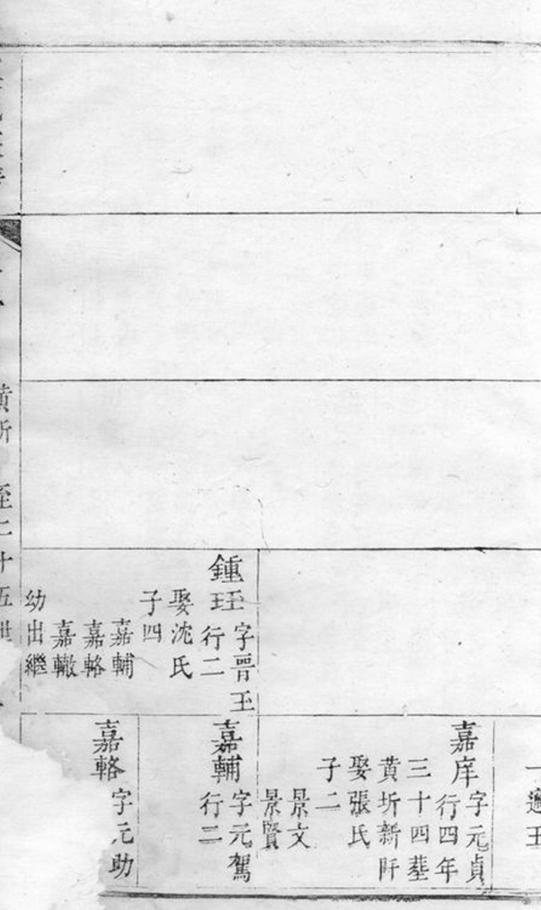 鍾玨
字晉玉
行二
娶沈氏
子四
嘉輔
嘉輅
嘉轍
幼出繼
一適王
嘉庠
字元貞
行四年
三十四塟
黄圻新阡
娶張氏
子二
景文
景賢
嘉輔
字元駕
行二
嘉輅
字元助
黄圻 至二十五世